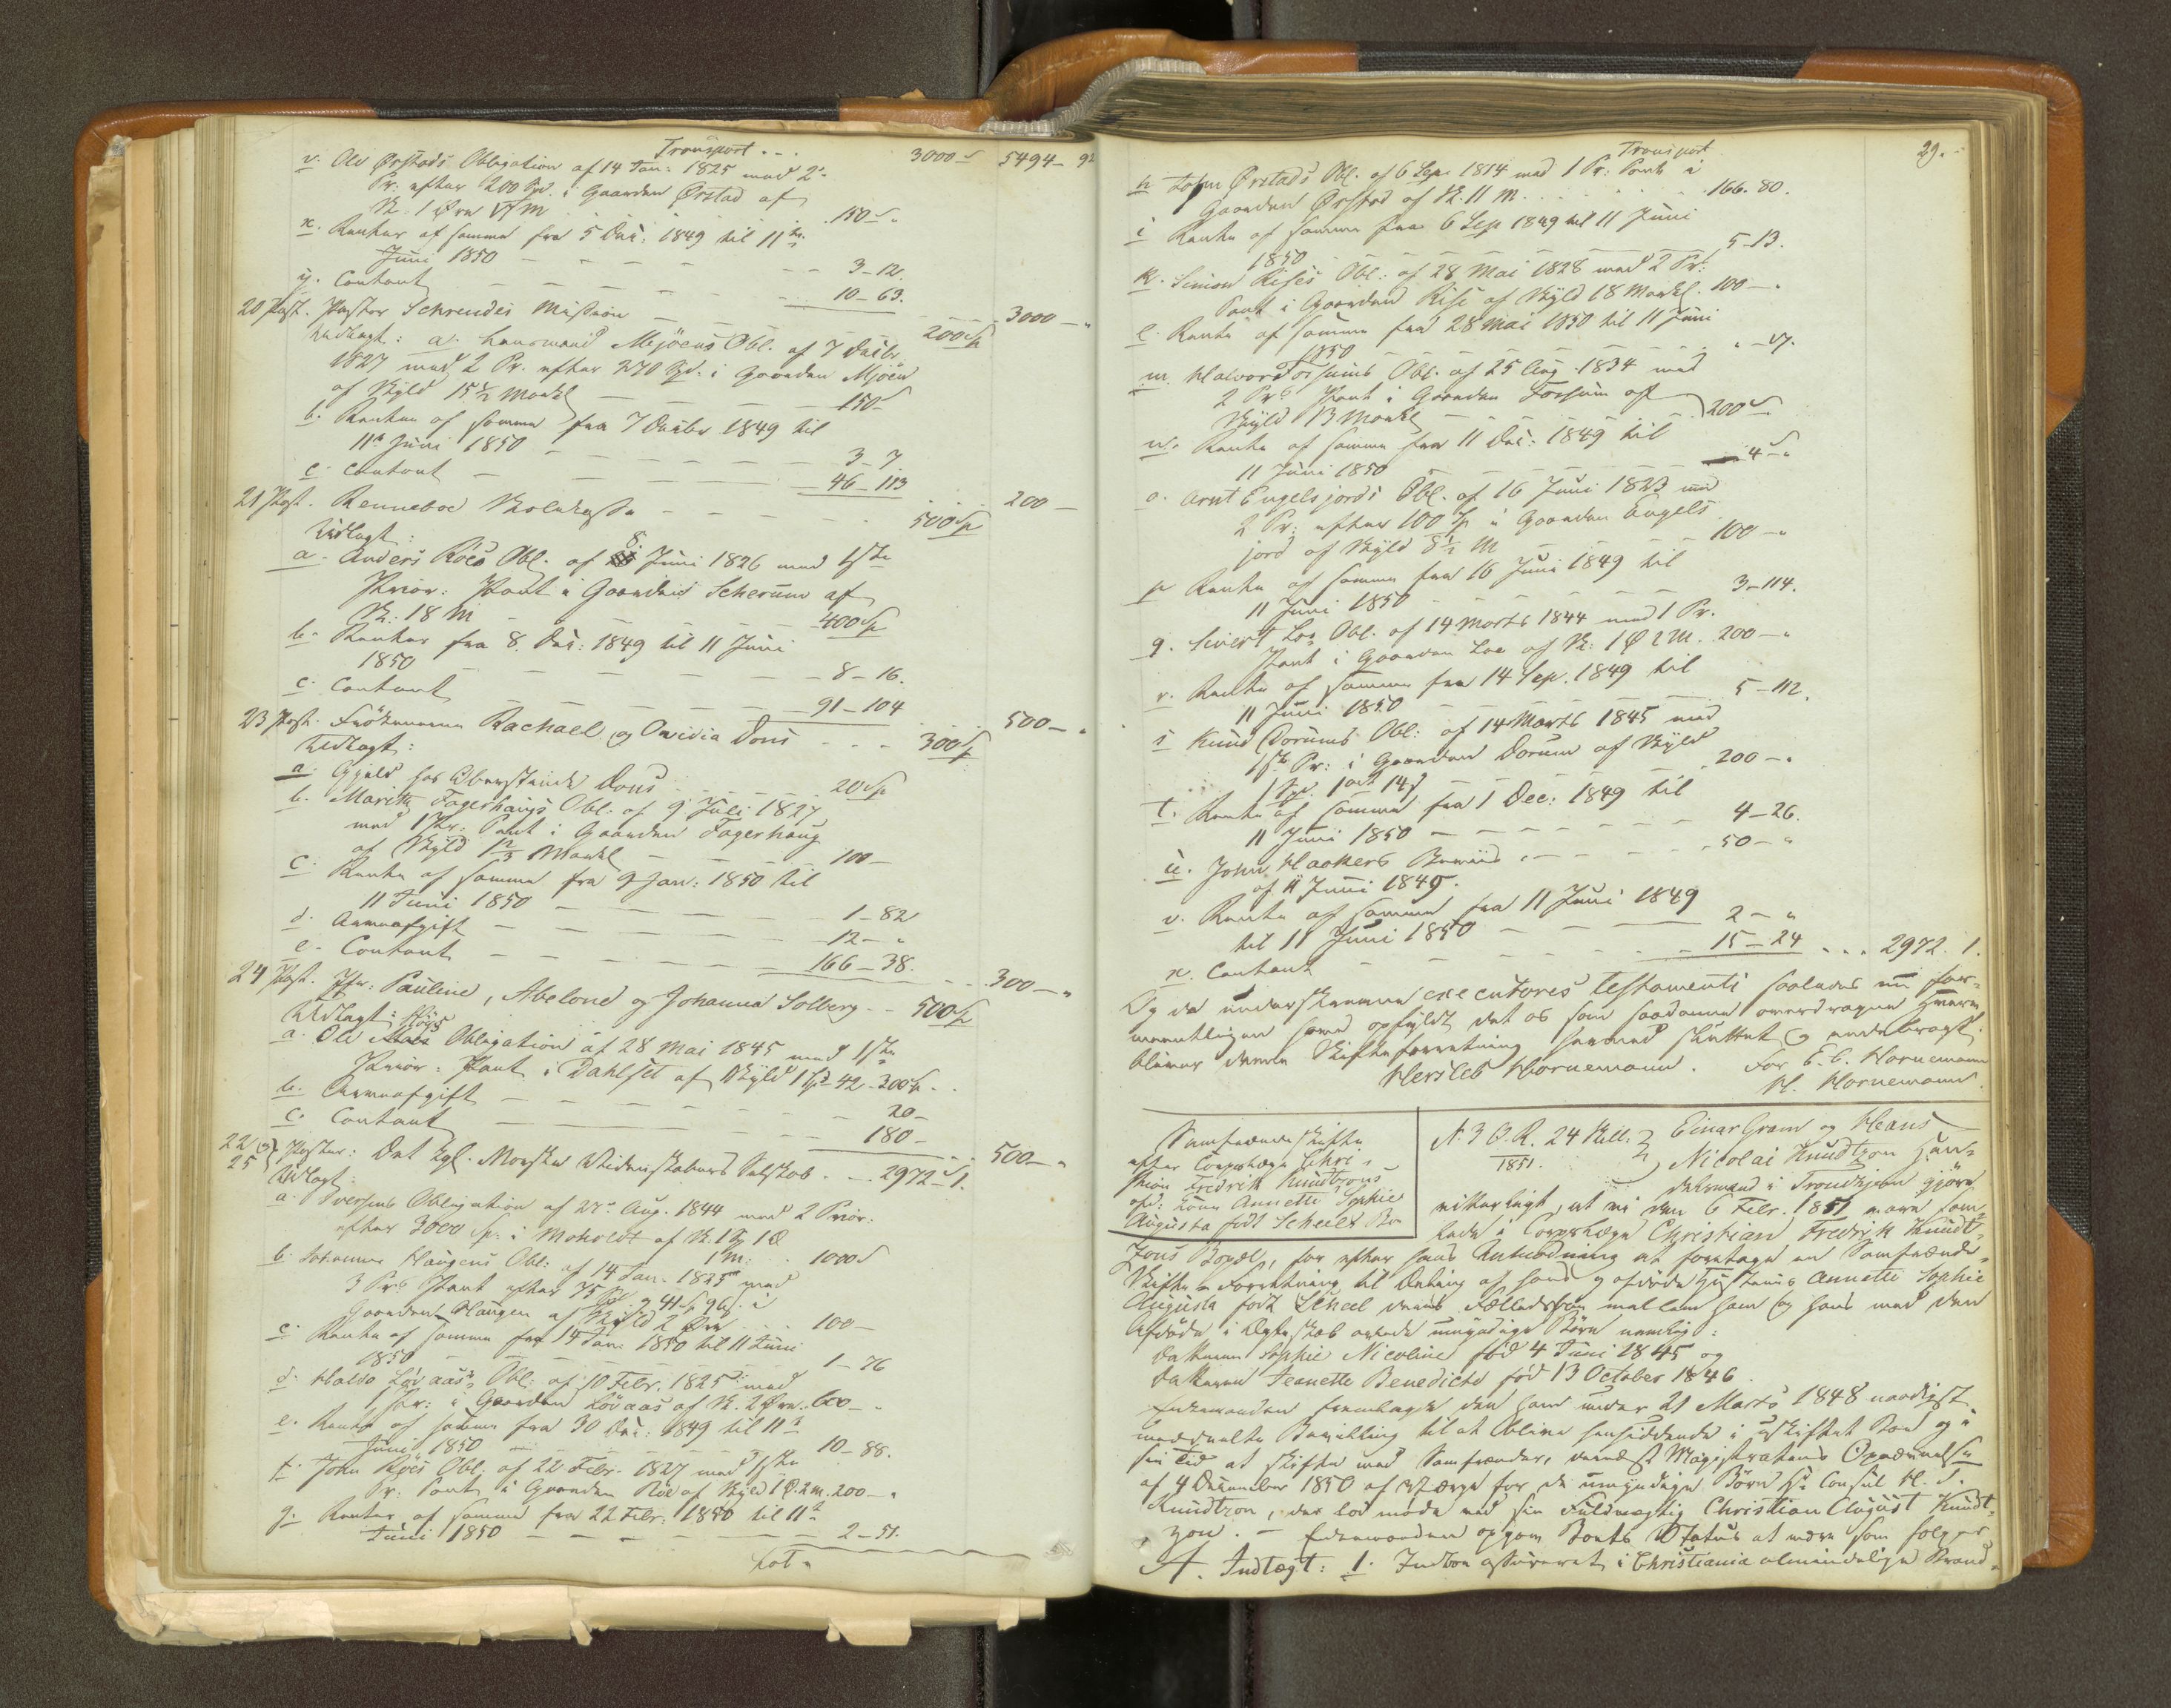 Transport . . . 3000 5494 – 92
v. Ole Ørstads Obligation af 14 Jan: 1825 med 2
Pr: efter 200 Spd. i Gaarden Ørstad af
Sk. 1 Øre 150
x. Renter af samme fra 5 Dec: 1849 til 11te
Juni 1850 – – – – – – 3 – 12.
y. Contant – – – – – – 10 – 63.
3000 – "
20 Post. Pastor Schreuders Mission – – – 200 Sp
Udlagt: a. Lensmand Mjöens Obl. af 7 Decbr
1827 med 2 Pr. efter 270 Spd. i Gaarden Mjöen
af Skyld 15 1/2 Markl – – – 150
b. Renten af samme fra 7 Decbr 1849 til
11te Juni 1850 – – – – – 3 – 7
c. Contant – – – – – 46 – 113
200 –
21 Post. Renneboe Skolekasse – – – – 500 Sp
Udlagt:
a. Anders Röes Obl. af 8. Juni 1826 med 1ste
Prior: Pant i Gaarden Scherum af
Sk. 18 M – – – – 400 Sp
b. Renter fra 8. Dec: 1849 til 11 Juni
1850 – – – – – – 8 – 16.
c. Contant – – – – – 91 – 104
500 – "
23 Post. Frökenerne Rachael og Ovidia Dons . . . 300 Sp
Udlagt:
a. Gjæld hos Oberstinde Dons . . . . 20 Sp
b. Marith Fagerhaugs Obl. af 9 Juli 1827
med 1 Pr: Pant i Gaarden Fagerhaug
af Skyld 1 2/3 Markl – – – – 100 –
c. Rente af samme fra 9 Jan: 1850 til
11 Juni 1850 – – – – – 1 – 82
d. Arveafgift – – – – – 12 – "
e. Contant – – – – – 166 – 38.
300 – "
24 Post. Jfr: Pauline, Abelone og Johanna Solberg – 500 Sp
Udlagt:
a. Ole Obligation af 28 Mai 1845 med 1ste
Prior: Pant i Dahlset af Skyld 1 Sp 42 – 300 Sp.
b. Arveafgift – – – – – 20 –
c. Contant – – – – – 180 –
500 – "
22 og 25 Poster: Det Kgl. Norske Videnskabers Selskab . – 2972 – 1.
Udlagt
a. Iversens Obligation af 22 Aug. 1844 med 2 Prior:
efter 3000 Sp. i Moholdt af Sk. 1 Sp 1
1 M: . . 1000
b. Johannes Haugens Obl: af 14 Jan. 1825 med
3 Prs Pant efter 75 Spd og 41 Sp 96 s. i
Gaarden Haugen af Skyld 2 Øre . . . 100 –
c. Rente af samme fra 14 Jan: 1850 til 11 Juni
1850 – – – – – – 1 – 76
d. Haldo Löv aas's Obl: af 10 Febr. 1825 med
1 Pr: i Gaarden Lövaas af Sk. 2 Øre. 600 – "
e. Rente af samme fra 30 Dec: 1849 til 11te
Juni 1850 – – – – – 10 – 88.
f. John Röes Obl: af 22 Febr. 1827 med 1ste
Pr: Pant i Gaarden Röe af Skyld 1 2 M. 200 – "
g. Renter af samme fra 22 Febr: 1850 til 11te
Juni 1850 – – – – – 2 – 51.
Lat.
29.
Transport
h John Ørstads Obl. af 6 Sep. 1814 med 1 Pr. Pant i
Gaarden Ørstad af Sk. 11 M . . . . . 166. 80.
i Rente af samme fra 6 Sep 1849 til 11 Juni
1850 – – – – – 5 – 13.
k. Simon Rises Obl: af 28 Mai 1828 med 2 Prt:
Pant i Gaarden Rise af Skyld 18 Markl. 100 – "
l. Rente af samme fra 28 Mai 1850 til 11 Juni
1850 – – – – – " – 17.
m. Halvor Forsums Obl. af 25 Aug. 1834 med
2 Prs Pant i Gaarden Forsum af
Skyld 13 Markl – – – – 200
n. Rente af samme fra 11 Dec: 1849 til
11 Juni 1850 – – – – 4 – "
o. Arnt Engelsjords Obl. af 16 Juni 1823 med
2 Pr: efter 100 Sp i Gaarden Engels
jord af Skyld 8 1/2 M – – – 100 – "
p Rente af samme fra 16 Juni 1849 til
11 Juni 1850 – – – – – 3 – 114.
q. Sivert Loe Obl. af 14 Marts 1844 med 1 Pr.
Pant i Gaarden Loe af Sk: 1 2 M. 200 – "
r. Rente af samme fra 14 Sep. 1849 til
11 Juni 1850 – – – – – 5 – 112.
s Knud Dorums Obl: af 14 Marts 1845 med
1ste Pr: i Gaarden Dorum af Skyld
1 Spd. 1 ort 14 s – – – – 200 – "
t. Rente af samme fra 1 Dec: 1849 til
11 Juni 1850 – – – – – 4 – 26.
u. John Haakers Beviis . – – – 50 – "
af 11 Juni 1849.
v. Rente af samme fra 11 Juni 1849
til 11 Juni 1850 – – – 2 – "
x. Contant – – – – – 15 – 24 . . . 2972. 1.
Og da undertegnede executores testamenti saaledes nu for-
mentligen have opfyldt det os som saadanne overdragne Hverv
bliver denne Skifteforretning hermed sluttet og underskrevet.
Hersleb Hornemann. For E. C. Hornemann
H. Hornemann.
Samfrændeskifte
efter Corpslæge Chri-
stian Fredrik Knudtzons
afd: Kone Annette Sophie
Augusta født Scheels Bo
N. 3 O. R. 24 Skill. 1851.
Einar Gram og Hans
Nicolai Knudtzon Han-
delsmænd i Trondhjem gjöre
vitterligt, at vi den 6 Febr. 1851 vare sam-
lede i Corpslæge Christian Fredrik Knudt-
zons Bopæl, for efter hans Anmodning at foretage en Samfrænde-
Skifte-Forretning til Deling af hans og afdøde Hustrues Annette Sophie
Augusta født Scheel deres Fælledsbo mellem ham og hans med den
Afdøde i Ægteskab avlede umyndige Børn nemlig:
Datteren Sophie Nicoline fød 4 Juni 1845 og
Datteren Jeanette Benedicte fød 13 October 1846.
Enkemanden fremlagde den ham under 21 Marts 1848 naadigst
meddeelte Bevilling til at blive hensiddende i uskiftet Bo og i
sin Tid at skifte med Samfrænder, dernæst Magistratens Opnævnelse
af 4 December 1850 af Værge for de umyndige Børn Hr Consul H. J.
Knudtzon, der lod møde ved sin Fuldmægtig Christian August Knudt-
zon. – Enkemanden opgav Boets Status at være som følger
A. Indtægt: 1. Indbo assureret i Christiania almindelige Brand-